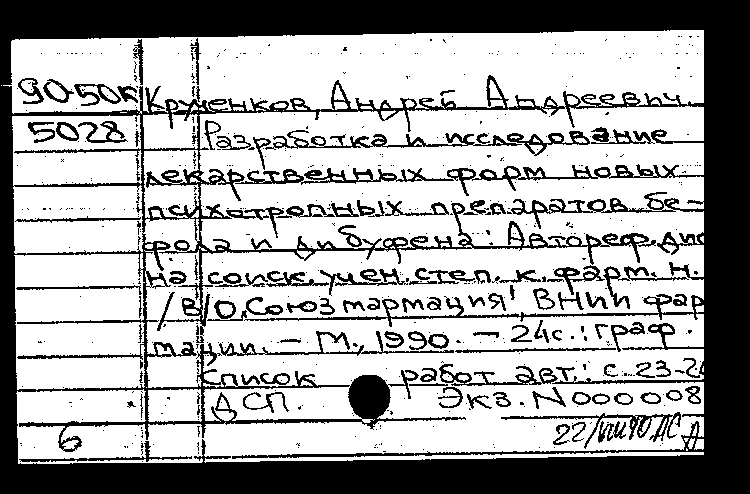 90-50к Крученков, Андрей Андреевич.
5028 Разработка и исследование
лекарственных форм новых
психотропных препаратов бе-
фола и дибуфена: Автореф. дис
на соиск. учен. степ. к. фарм. н.
/ В/О „Союзфармация", ВНИИ фар
мации. – М., 1990. – 24с.: граф.
Список работ авт.: с. 23-2
ДСП. Экз. N 000008
6 22/VIII90